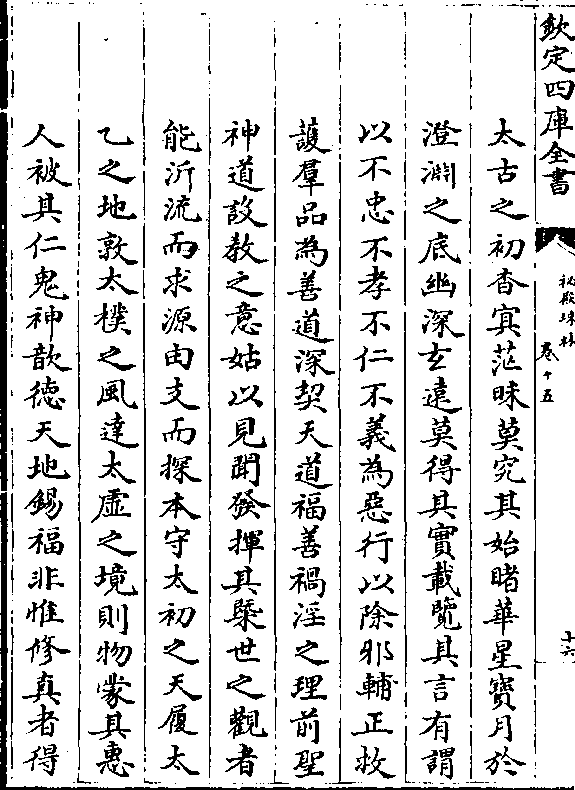 欽定四庫全書
秘殿珠林
卷十五
十六
太古之初杳冥茫昧莫究其始睹華星寶月於
澄淵之底幽深玄遠莫得其實載覽其言有謂
以不忠不孝不仁不義為惡行以除邪輔正救
護羣品為善道深契天道福善禍淫之理前聖
神道設教之意姑以見聞發揮其槩世之觀者
能沂流而求源由支而探本守太初之天履太
乙之地敦太樸之風達太虛之境則物蒙其惠
人被其仁鬼神歆德天地錫福非惟修真者得